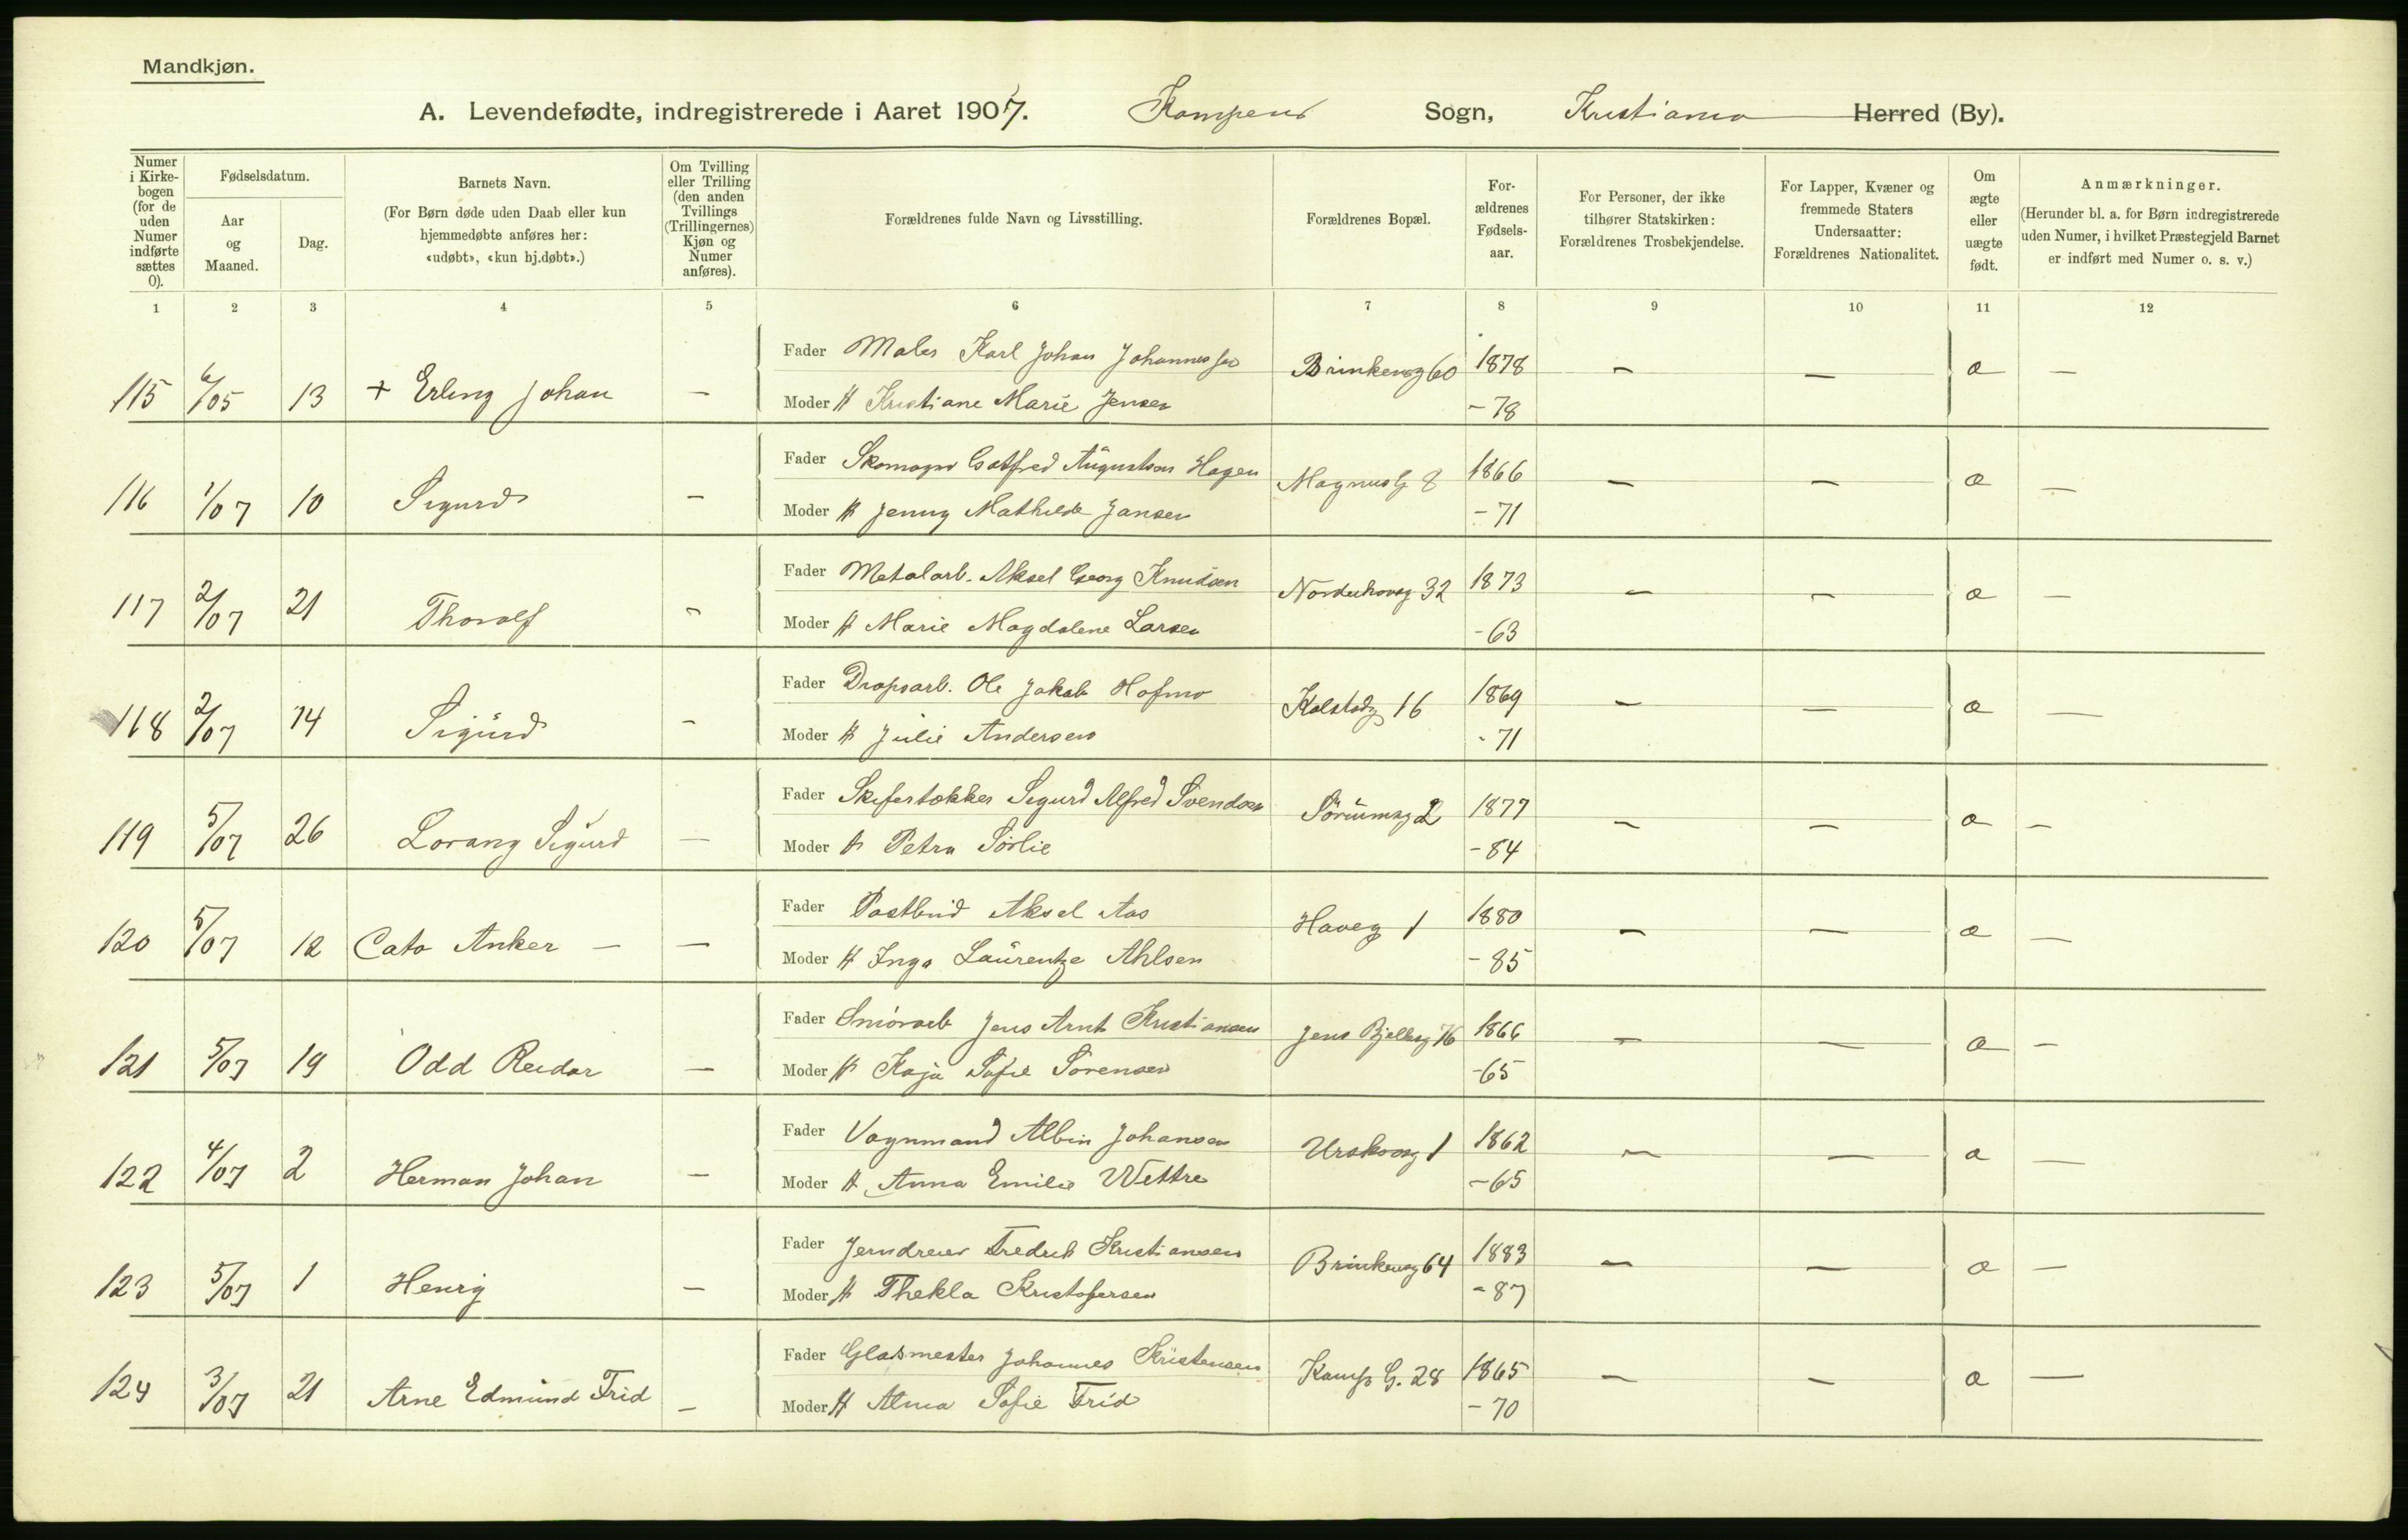 Mandkjøn.
A. Levendefødte, indregistrerede i Aaret 1907. Kampens Sogn, Kristiania Herred (By).
Numer i Kirkebogen (for de uden Numer indførte sættes 0).
Fødselsdatum.
Aar og Maaned.
Dag.
Barnets Navn.
(For Børn døde uden Daab eller kun hjemmedøbte anføres her: «udøbt», «kun hj.døbt».)
Om Tvilling eller Trilling (den anden Tvillings (Trillingernes) Kjøn og Numer anføres).
Forældrenes fulde Navn og Livsstilling.
Forældrenes Bopæl.
Forældrenes Fødselsaar.
For Personer, der ikke tilhører Statskirken: Forældrenes Trosbekjendelse.
For Lapper, Kvæner og fremmede Staters Undersaatter: Forældrenes Nationalitet.
Om ægte eller uægte født.
Anmærkninger.
(Herunder bl. a. for Børn indregistrerede uden Numer, i hvilket Præstegjeld Barnet er indført med Numer o. s. v.)
1 2 3 4 5 6 7 8 9 10 11 12
Fader Maler Karl Johan Johannessen Brinkensg 60 1878 — — æ —
115 6/05 13 + Erling Johan —
Moder H Kristiane Marie Jensen - 78
Fader Skomager Gotfred Augustson Hagen Magnus G 8 1866 — — æ —
116 1/07 10 Sigurd —
Moder H Jenny Mathilde Jansen - 71
Fader Metalarb. Aksel Georg Knudsen Norderhovsg 32 1873 — — æ —
117 2/07 21 Thoralf —
Moder H Marie Magdalene Larsen - 63
Fader Dropsarb. Ole Jakob Hofmo Kolstadg 16 1869 — — æ —
118 2/07 14 Sigurd —
Moder H Julie Andersen - 71
Fader Skifertækker Sigurd Alfred Svendsen Sørumsg 2 1877 — — æ —
119 5/07 26 Lorang Sigurd —
Moder H Petra Sørlie - 84
Fader Postbud Aksel Aas Haveg 1 1880 — — æ —
120 5/07 12 Cato Anker — —
Moder H Inga Laurentze Ahlsen - 85
Fader Smørarb Jens Arnt Kristiansen Jens Bjelkesg 76 1866 — — æ —
121 5/07 19 Odd Reidar —
Moder H Kaja Sofie Sørensen - 65
Fader Vognmand Albin Johansen Urskovsg 1 1862 — — æ —
122 4/07 2 Herman Johan —
Moder H Anna Emilie Wettre - 65
Fader Jerndreier Fredrik Kristiansen Brinkensg 64 1883 — — æ —
123 5/07 1 Henry —
Moder H Thekla Kristofersen - 87
Fader Glasmester Johannes Kristensen Kamp G. 28 1865 — — æ —
124 3/07 21 Arne Edmund Frid —
Moder H Alma Sofie Frid - 70